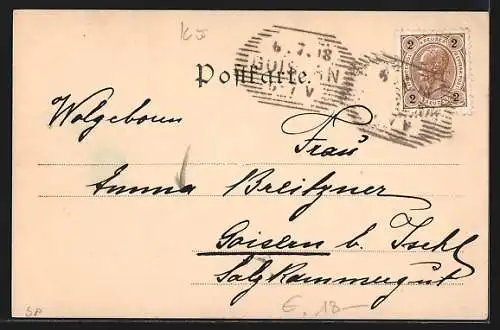 6.7.98
GOISERN
Postkarte.
2 2
2 2
Wolgeboren
Frau
Anna Breitzner
Goisern b. Ischl
Salzkammergut
SP
6.18-